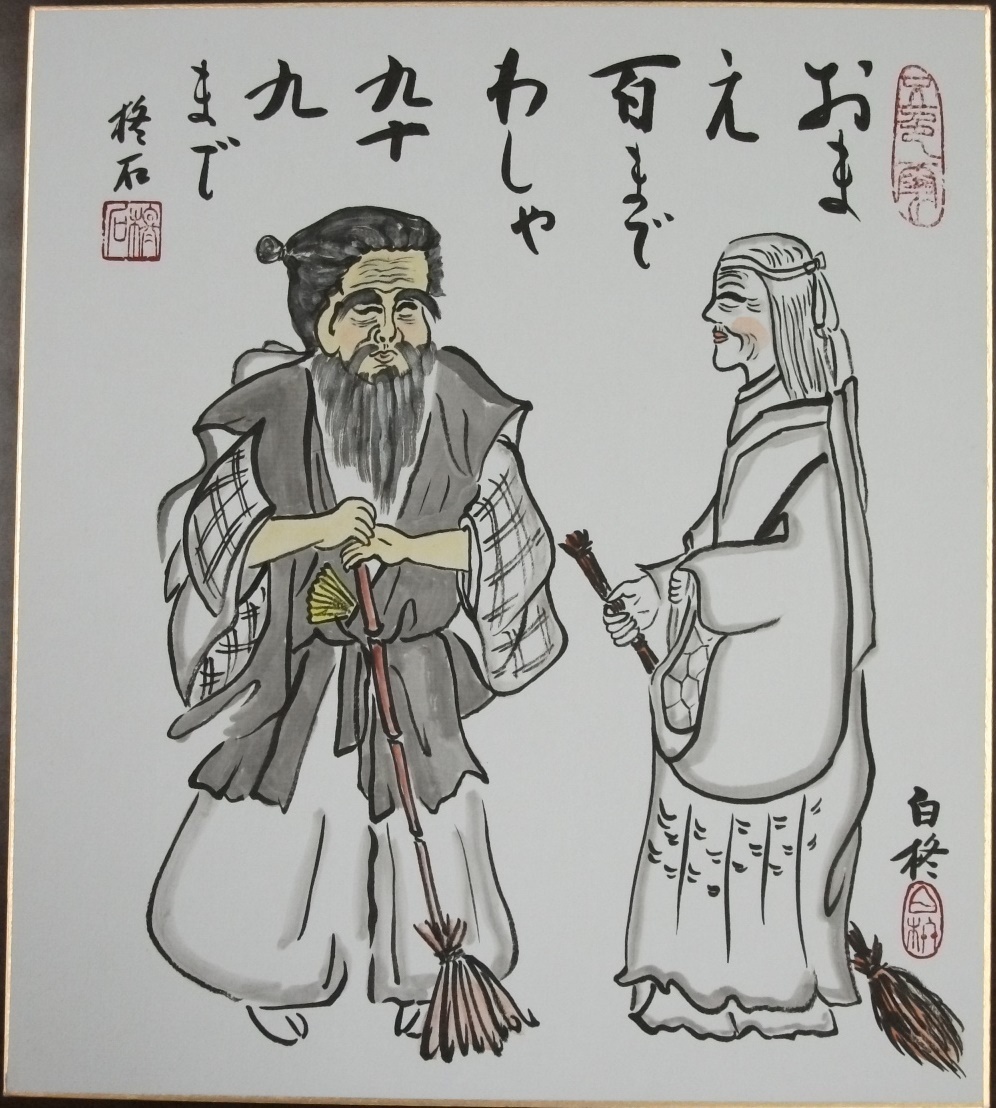 おま
え
百まで
わしゃ
九十
九
まで
柊石
白柊
白柊